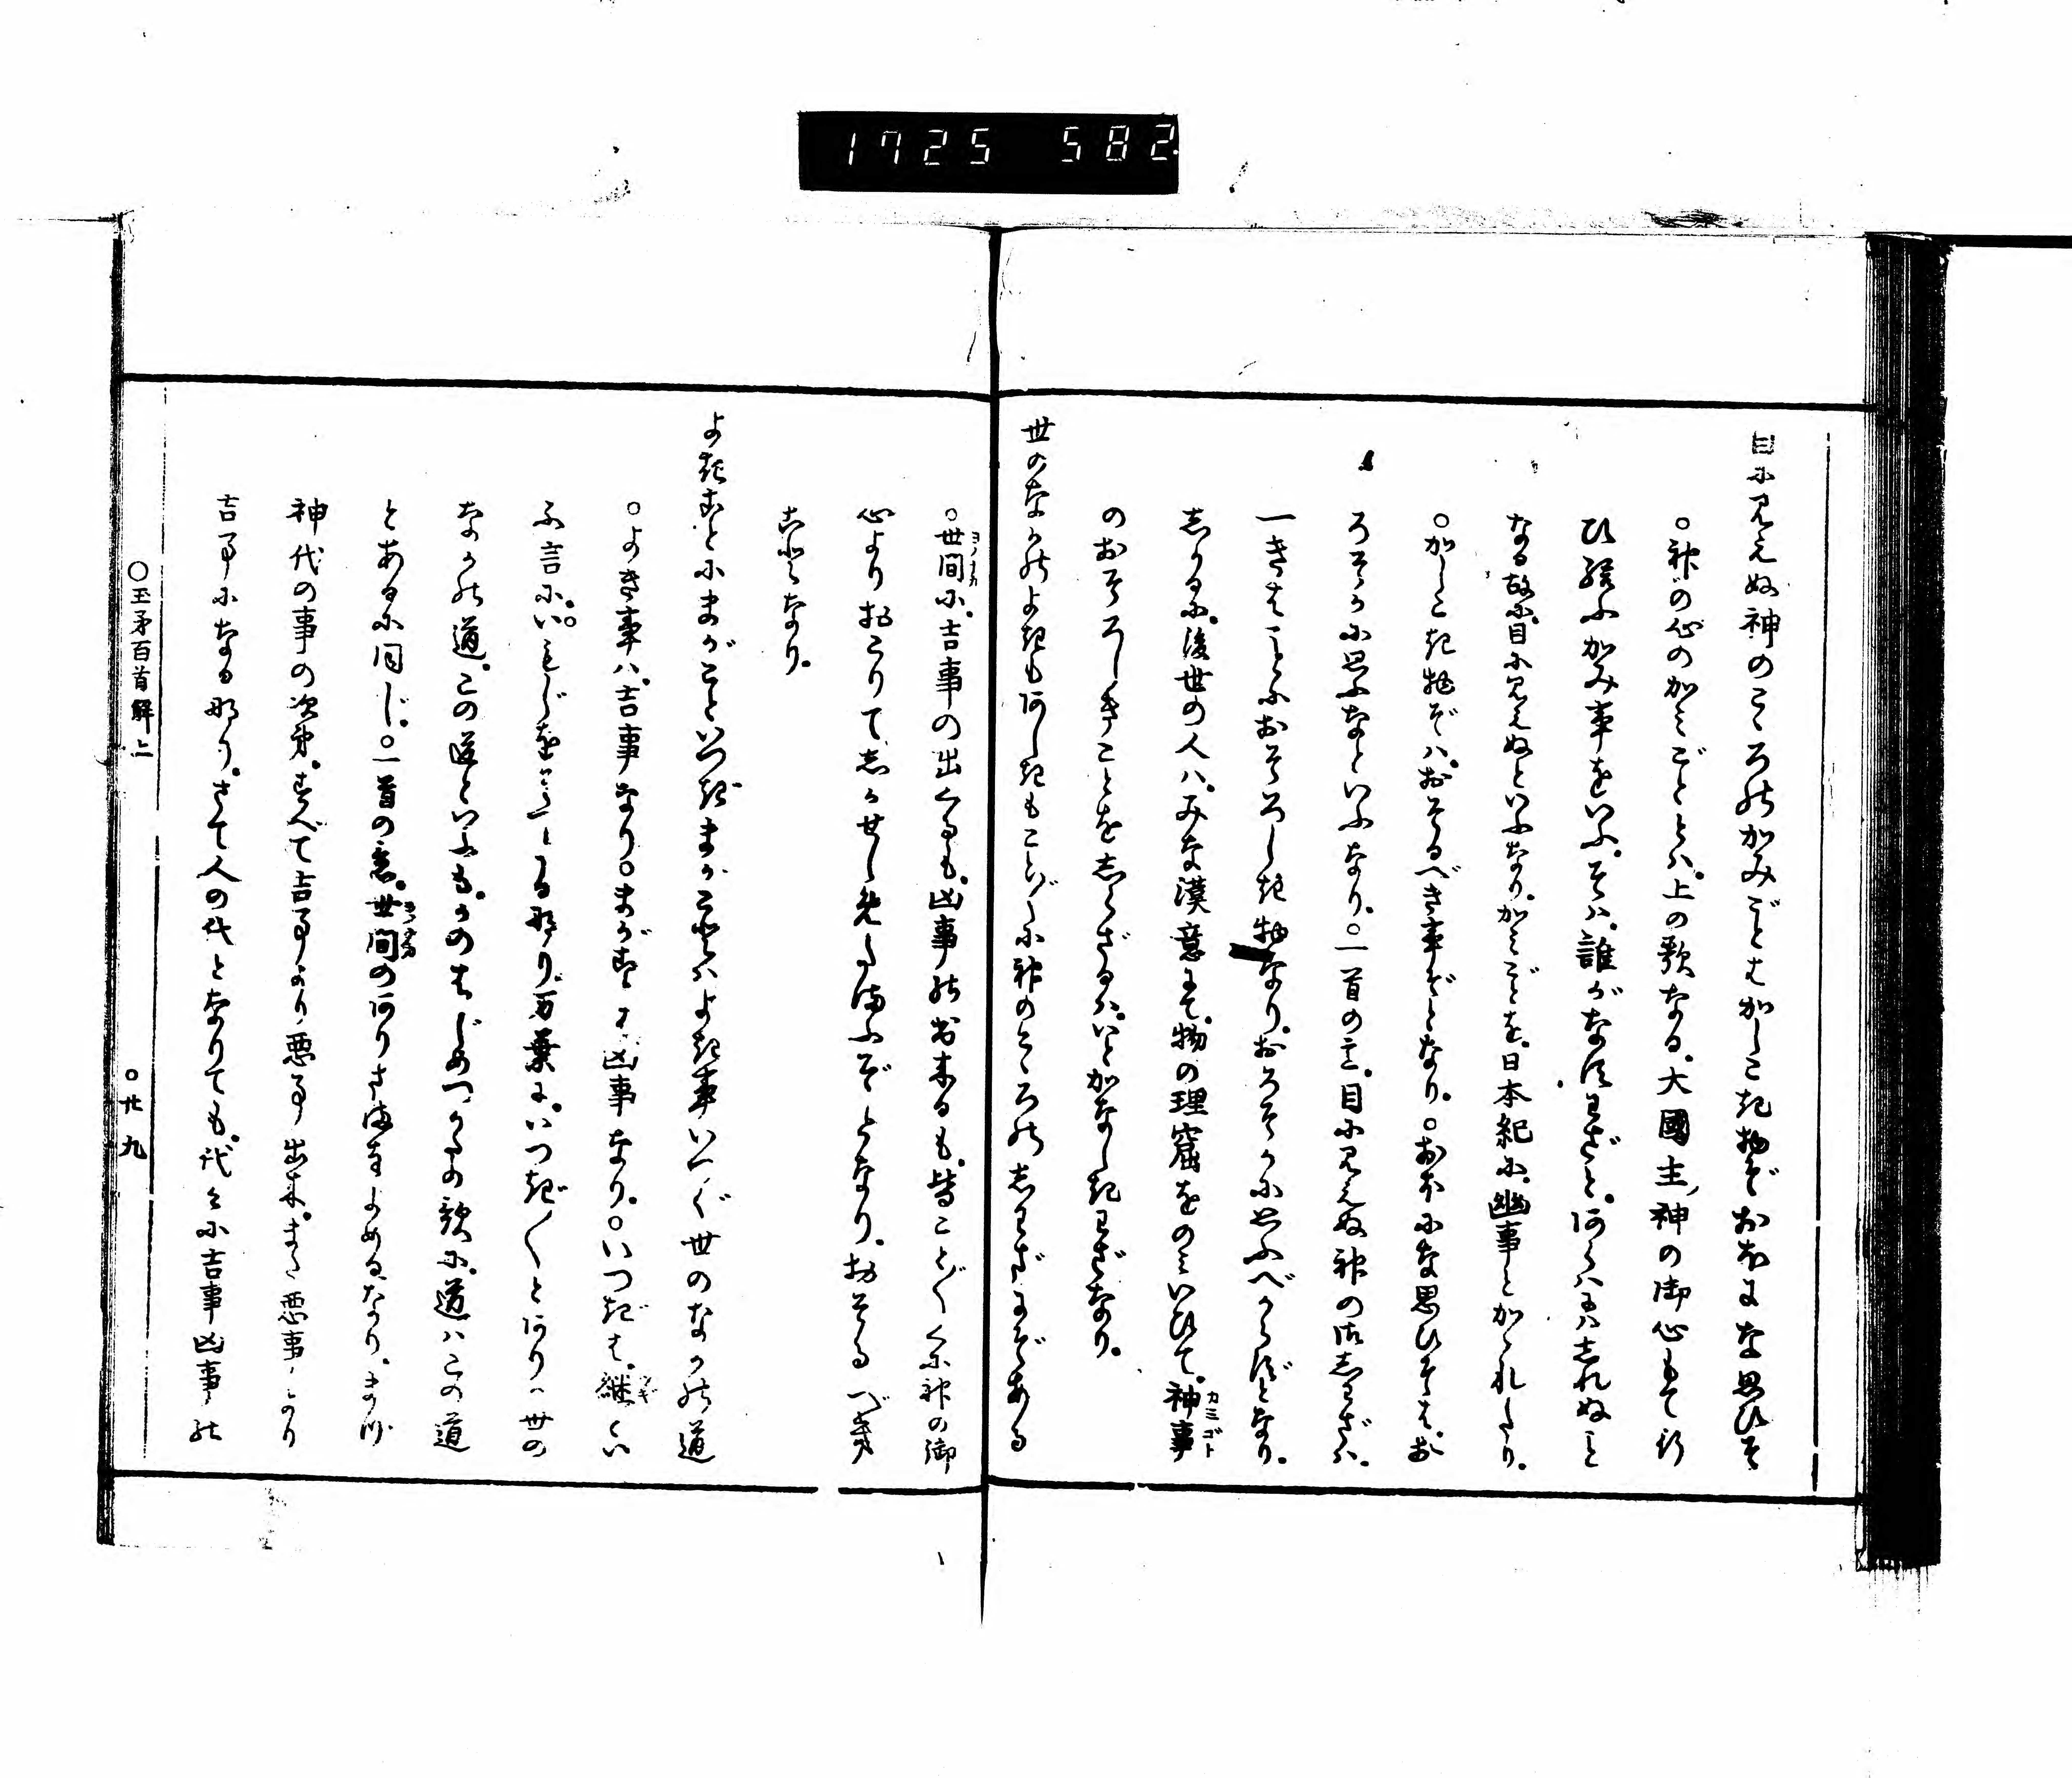 1725 582
目に見えぬ神のこゝろのかみごとはかしこき物ぞおほにな思ひそ
○神の心のかみごととハ。上の歌なる。大國主神の御心もて行
ひ給ふかみ事をいふ。そハ。誰がなすわざと。あらハにハしれぬこと
なる故に。目に見えぬといふなり。かみごとを。日本紀に。幽事とかゝれたり。
○かしこき物ぞハ。おそるべき事ぞとなり。○おほにな思ひそは。お
ろそかに思ふなといふなり。○一首の意。目に見えぬ神の御しわざハ。
一きはことにおそろしき物なり。おろそかに思ふべからずとなり。
しかるに。後世の人ハ。みな漢意にて。物の理窟をのミいひて。神事
カミゴト
のおそろしきことをしらざるハ。いとかなしきわざなり。
世のなかのよきもあしきもことごとに神のこゝろのしわざにぞある
○世間に。吉事の出くるも。凶事の出来るも。皆ことごとくに神の御
ヨノナカ
心よりおこりてしかせしめたまふぞとなり。おそるべき
ことなり。
よきことにまがこといつぎまがことハよき事いつぐ世のなかの道
○よき事ハ。吉事なり。○まがことは凶事なり。○いつぎは。継くい
ツギ
ふ言に。いもじをそへたる那り。万葉に。いつぎ〳〵とあり。世の
なかの道。この道といふも。かのはじめつかたの歌に。道ハこの道
とあるに同じ。○一首の意。世間のありさまをよめるなり。まづ
ヨノナカ
神代の事の次第。すべて吉事より悪事出来。また悪事より
吉事になる那り。さて人の代となりても。代々に吉事凶事の
○玉矛百首解上
○廿九